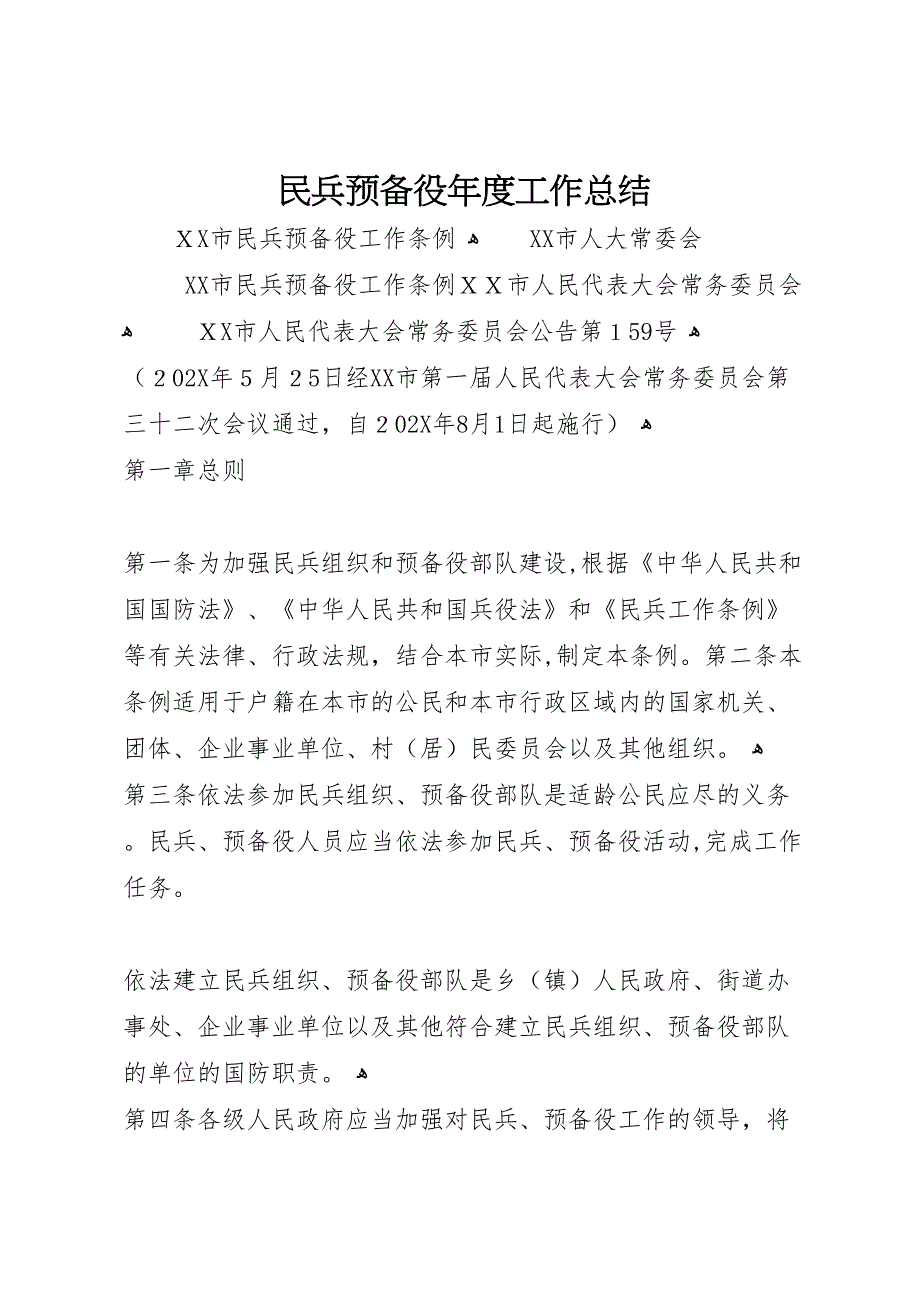 民兵预备役年度工作总结
ＸX市民兵预备役工作条例 ﻫ XX市人大常委会
XX市民兵预备役工作条例ＸＸ市人民代表大会常务委员会
ﻫ ＸX市人民代表大会常务委员会公告第１59号 ﻫ
（２02X年５月２5日经XX市第一届人民代表大会常务委员会第
三十二次会议通过，自２02X年8月1日起施行） ﻫ
第一章总则
第一条为加强民兵组织和预备役部队建设,根据《中华人民共和
国国防法》、《中华人民共和国兵役法》和《民兵工作条例》
等有关法律、行政法规，结合本市实际,制定本条例。第二条本
条例适用于户籍在本市的公民和本市行政区域内的国家机关、
团体、企业事业单位、村（居）民委员会以及其他组织。 ﻫ
第三条依法参加民兵组织、预备役部队是适龄公民应尽的义务
。民兵、预备役人员应当依法参加民兵、预备役活动,完成工作
任务。
依法建立民兵组织、预备役部队是乡（镇）人民政府、街道办
事处、企业事业单位以及其他符合建立民兵组织、预备役部队
的单位的国防职责。 ﻫ
第四条各级人民政府应当加强对民兵、预备役工作的领导，将